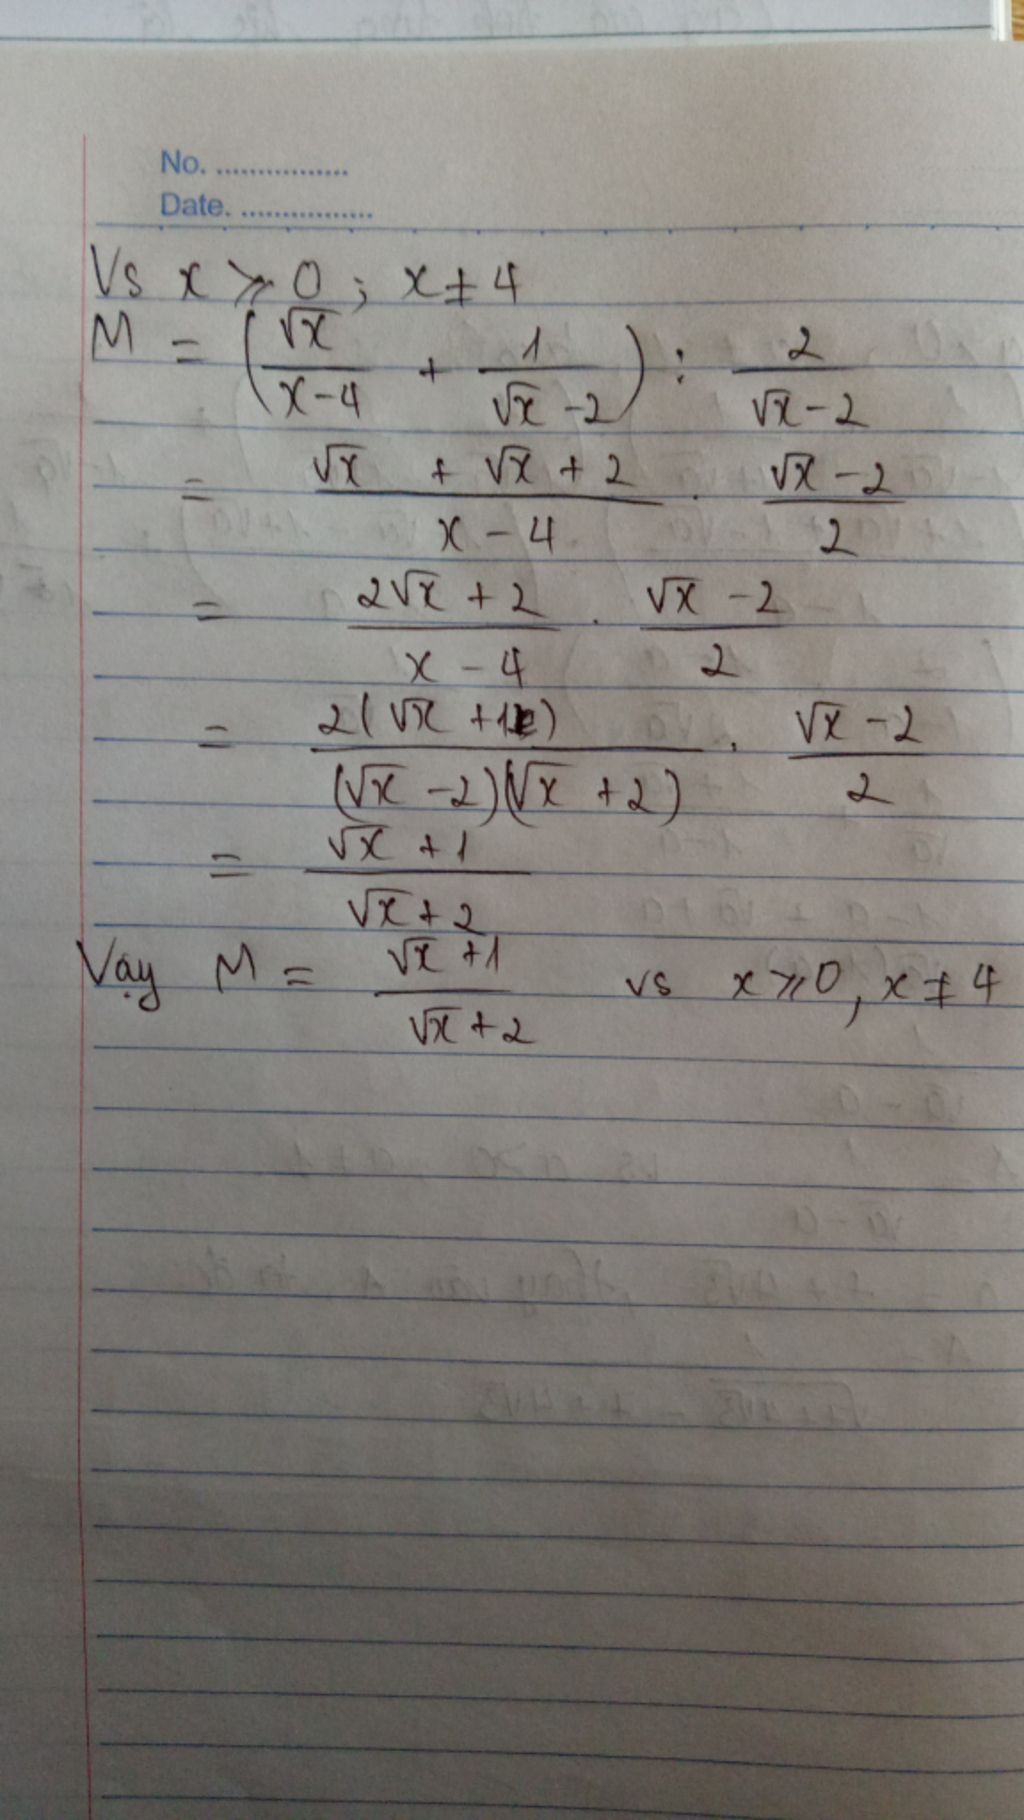 No. ................
Date. ................
Vs x ⩾ 0 ; x ≠ 4
M = (√x/(x-4) + 1/(√x -2)) : 2/(√x-2)
= (√x + √x + 2)/(x - 4) . (√x - 2)/2
= (2√x + 2)/(x - 4) . (√x - 2)/2
= 2(√x +1)/((√x - 2)(√x + 2)) . (√x - 2)/2
= (√x + 1)/(√x + 2)
Vạy M = (√x +1)/(√x + 2) vs x ⩾ 0, x ≠ 4